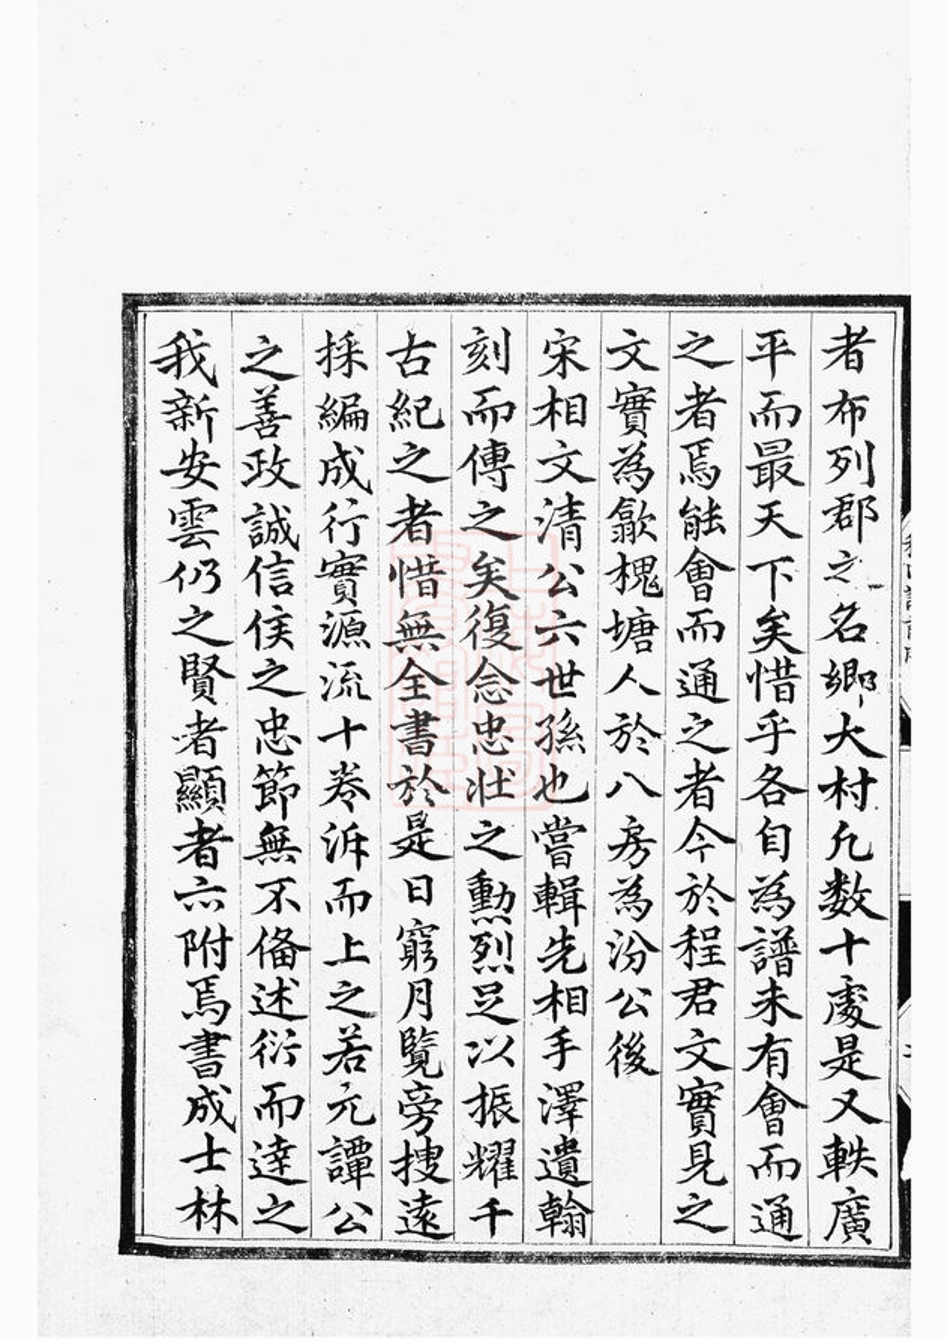 者布列郡之名卿大村凢数十處是又軼廣
平而最天下矣惜乎各自為譜未有會而通
之者焉能會而通之者今於程君文實見之
文實為歙槐塘人於八房為汾公後
宋相文清公六世孫也嘗輯先相手澤遺翰
刻而傳之矣復念忠壯之勳烈足以振耀千
古紀之者惜無全書於是日窮月覽旁搜遠
採編成行實源流十卷泝而上之若元譚公
之善政誠信侯之忠節無不俻述衍而達之
我新安雲仍之賢者顯者亦附焉書成士林